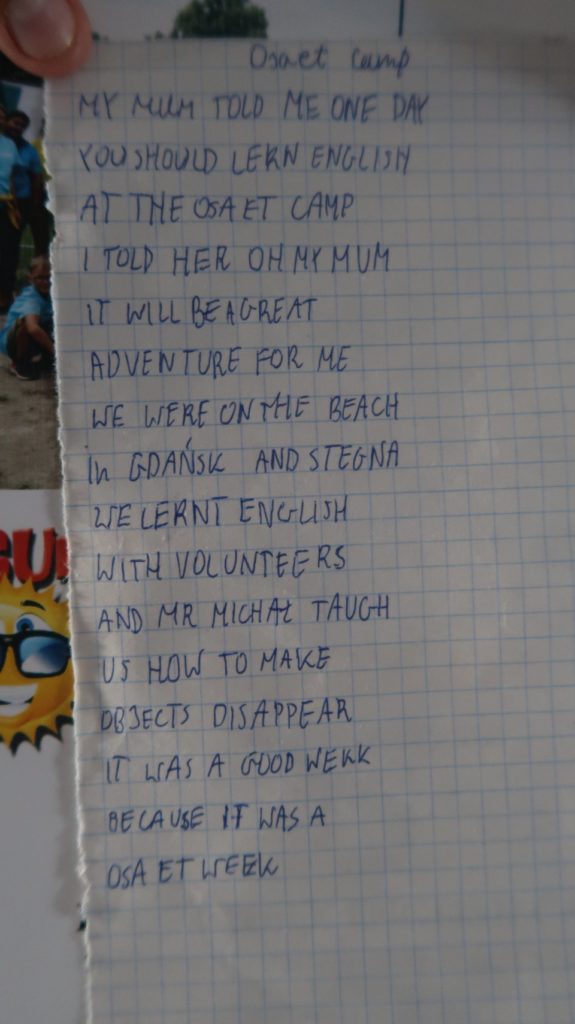 Osaet Camp
MY MUM TOLD ME ONE DAY
YOU SHOULD LERN ENGLISH
AT THE OSA ET CAMP
I TOLD HER OH MY MUM
IT WILL BE A GREAT
ADVENTURE FOR ME
WE WERE ON THE BEACH
In GDAŃSK AND STEGNA
WE LERNT ENGLISH
WITH VOLUNTEERS
AND MR MICHAŁ TAUGH
US HOW TO MAKE
OBJECTS DISAPPEAR
IT WAS A GOOD WEKK
BECAUSE IT WAS A
OSA ET WEEK